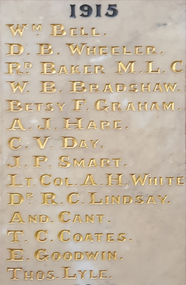 1915
Wm Bell.
D. B. Wheeler.
Rd Baker M.L.C
W. B. Bradshaw.
Betsy F. Graham.
A. J. Hare.
C. V. Day.
J. P. Smart.
Lt Col. A. H. White
Dr R. C. Lindsay.
And. Cant.
T. C. Coates.
E. Goodwin.
Thos. Lyle.